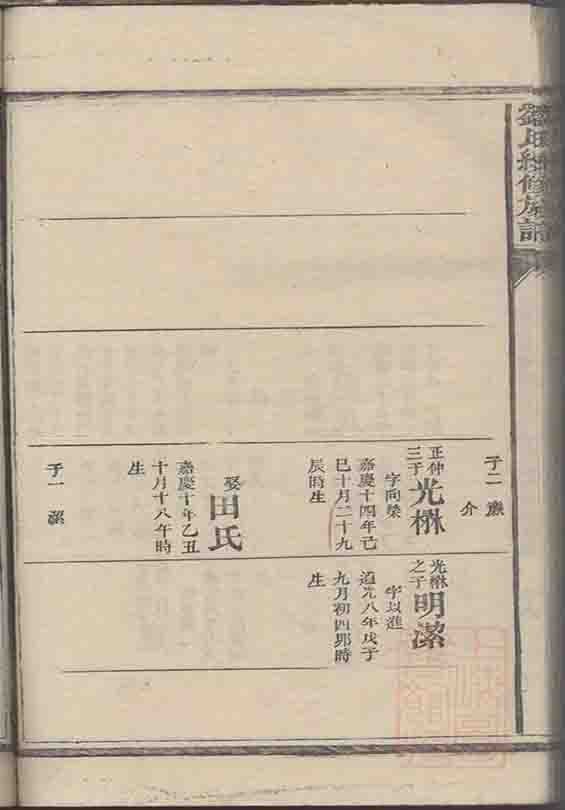 子二 㷱
介
正仲
三子
光楙
字向榮
嘉慶十四年己
巳十月二十九
辰時生
娶
田氏
嘉慶十年乙丑
十月十八午時
生
子一 潔
光楙
之子
明潔
字以進
道光八年戊子
九月初四卯時
生